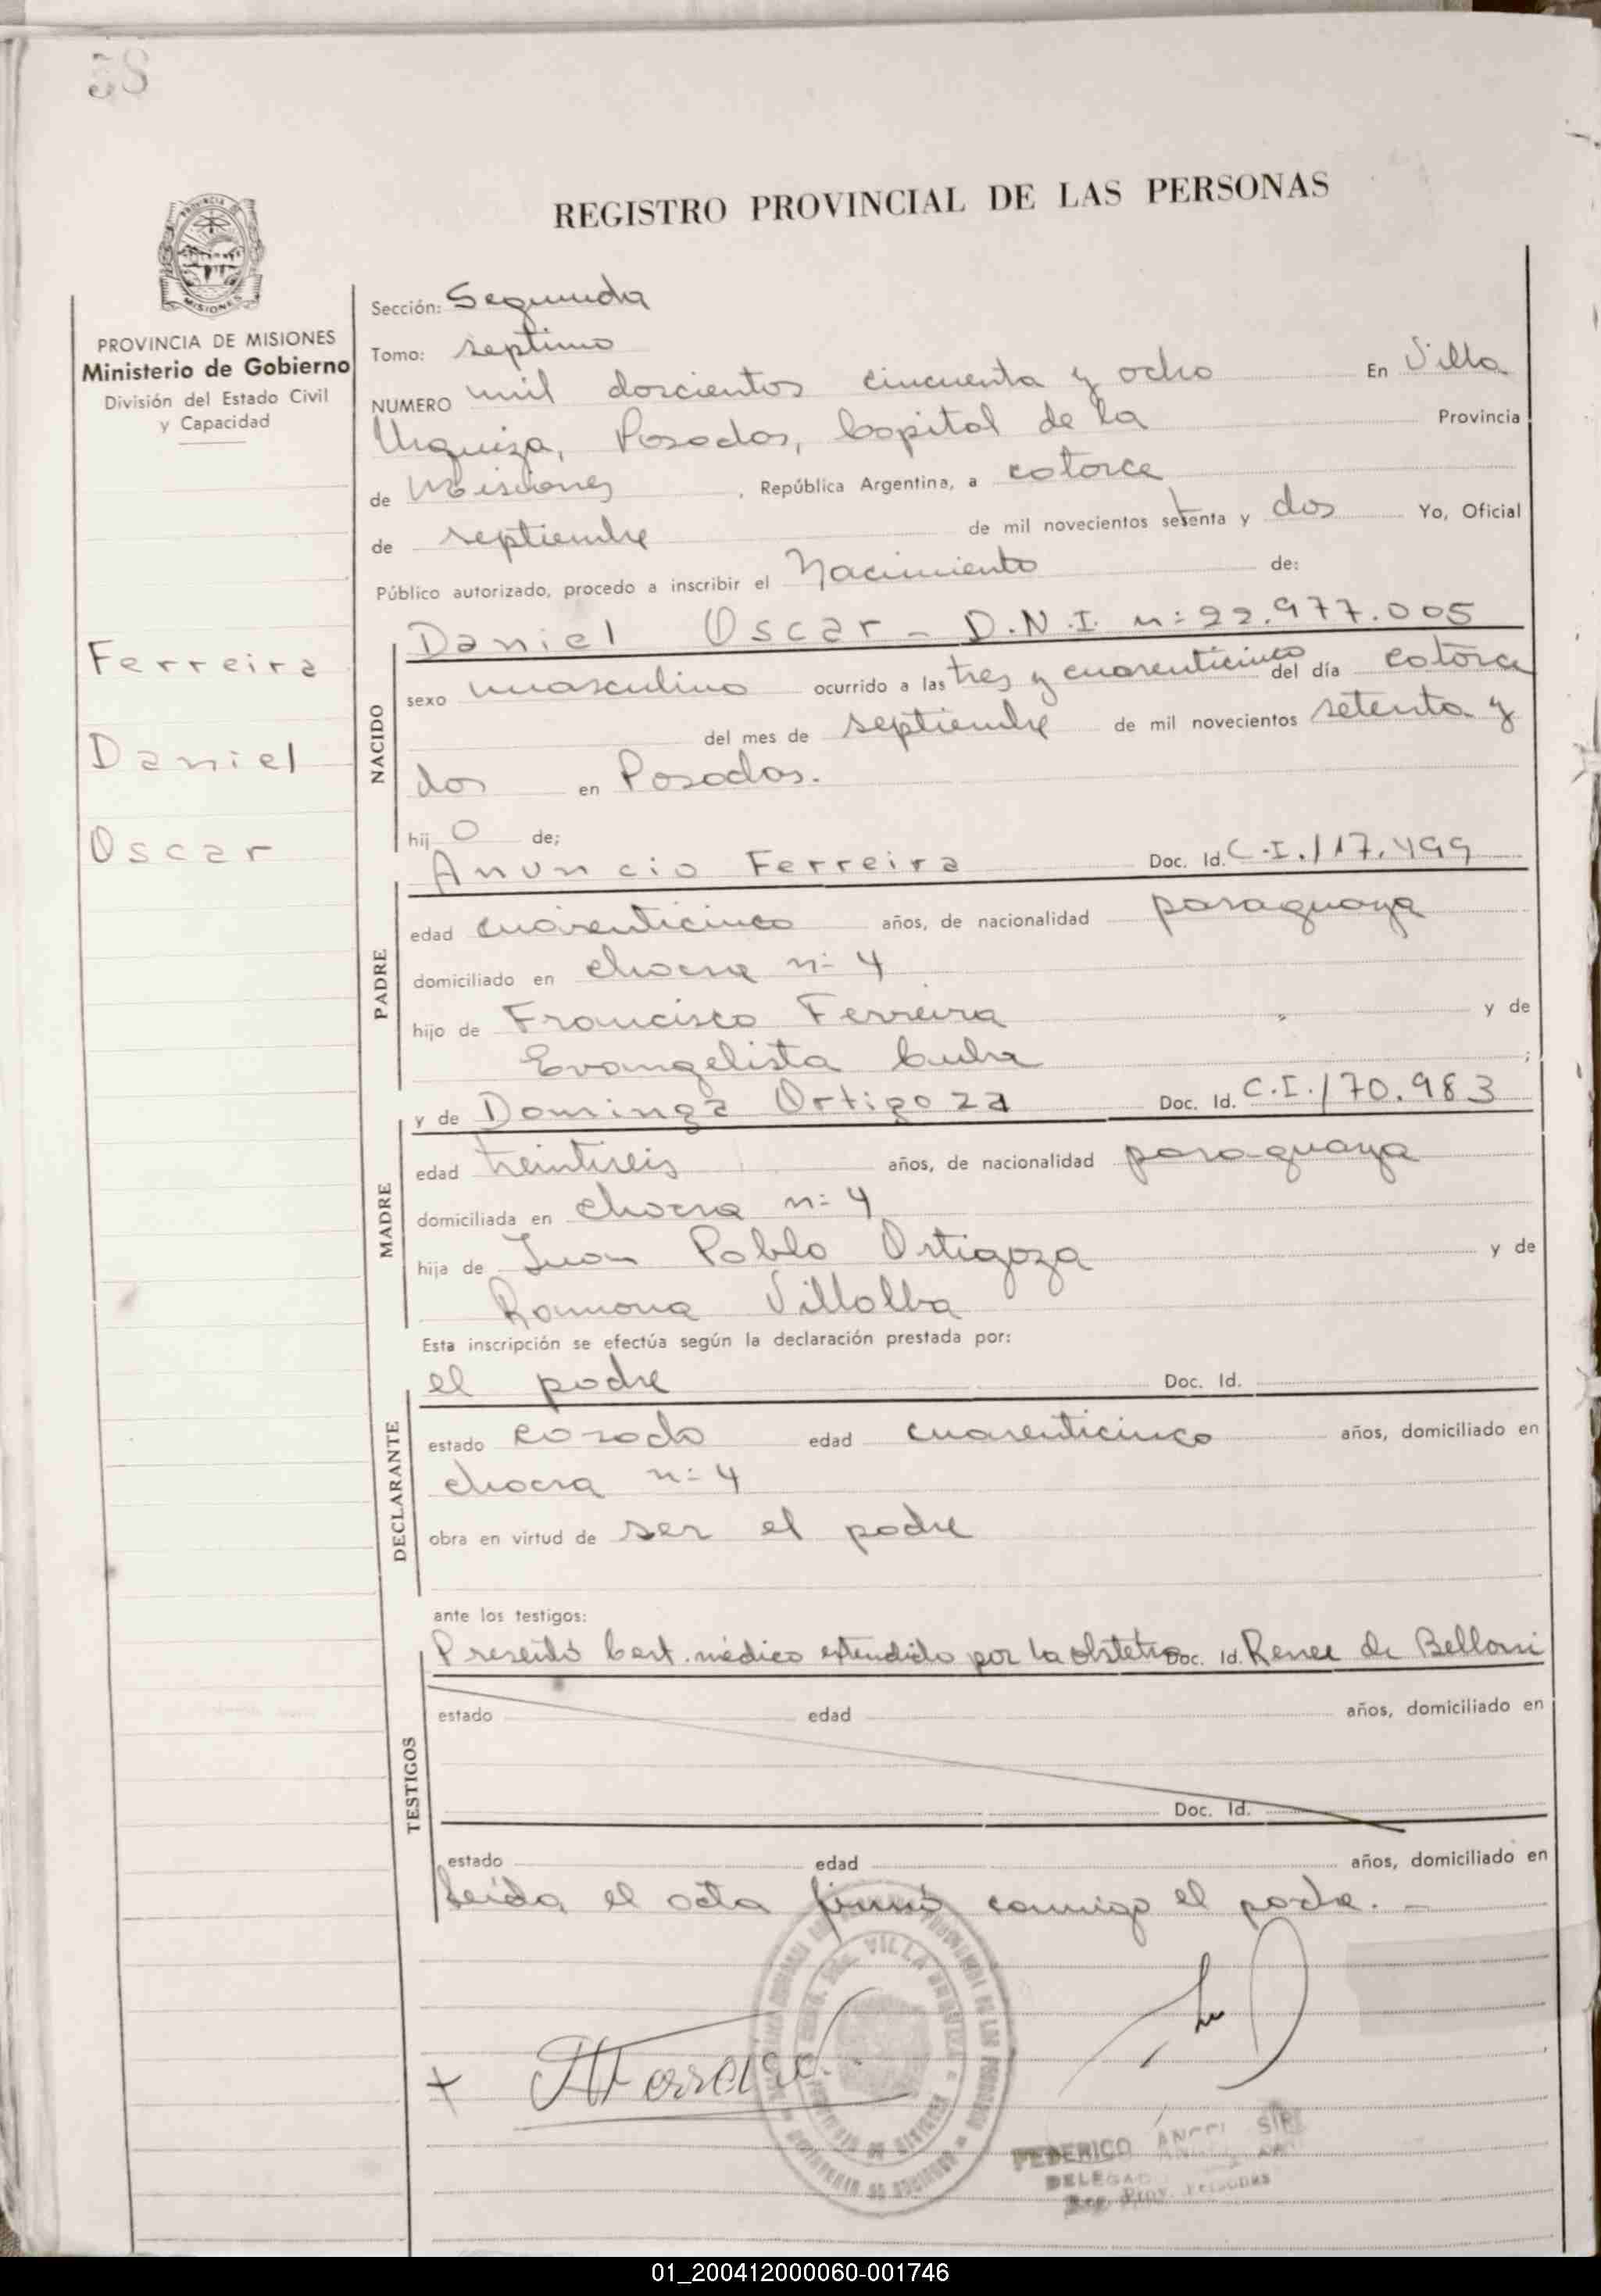 58
REGISTRO PROVINCIAL DE LAS PERSONAS
PROVINCIA DE MISIONES
Ministerio de Gobierno
División del Estado Civil
y Capacidad
Ferreira
Daniel
Oscar
Sección: Segunda
Tomo: septimo
NUMERO mil doscientos cincuenta y ocho En Villa
Urquiza, Posadas, Capital de la Provincia
de Misiones, República Argentina, a catorce
de septiembre de mil novecientos setenta y dos Yo, Oficial
Público autorizado, procedo a inscribir el Nacimiento de:
Daniel Oscar - D.N.I. n: 22.977.005
NACIDO
sexo masculino ocurrido a las tres y cuarenticinco del día catorce
del mes de septiembre de mil novecientos setenta y
dos en Posadas.
hij o de;
Anuncio Ferreira Doc. Id. C.I./17.499
PADRE
edad cuarenticinco años, de nacionalidad paraguaya
domiciliado en chacra n: 4
hijo de Francisco Ferreira y de
Evangelista ;
y de Dominga Ortigoza Doc. Id. C.I./70.983
MADRE
edad treintiseis años, de nacionalidad paraguaya
domiciliada en chacra n: 4
hija de Juan Pablo Ortigoza y de
Ramona Villalba
Esta inscripción se efectúa según la declaración prestada por:
el padre Doc. Id.
DECLARANTE
estado casado edad cuarenticinco años, domiciliado en
chacra n: 4
obra en virtud de ser el padre
ante los testigos:
Presentó Cert. médico extendido por la obstetra Doc. Id. Renee de Belloni
TESTIGOS
estado edad años, domiciliado en
Doc. Id.
estado edad años, domiciliado en
Leída el acta firmó conmigo el padre. -
VILLA URQUIZA
+ Ferreira
FEDERICO ANGEL
DELEGADO
Reg. Prov. Personas
01_200412000060-001746